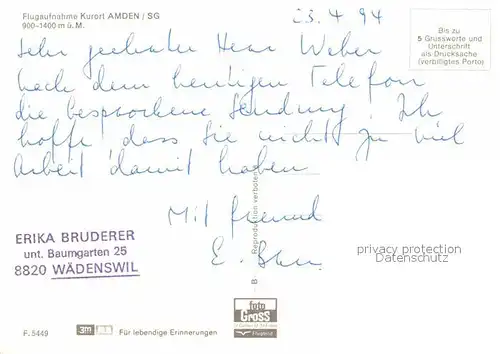 Flugaufnahme Kurort AMDEN / SG
900-1400 m ü. M.
23.4 94
Bis zu
5 Grussworte und
Unterschrift
als Drucksache
(verbilligtes Porto)
Sehr geehrter Herr Weber
Nach dem heutigen Telefon
die besprochene Sendung. Ich
hoffe dass Sie nicht zu viel
Arbeit damit haben
Mit freund
E.
Reproduktion verboten
B
ERIKA BRUDERER
unt. Baumgarten 25
8820 WÄDENSWIL
privacy protection
Datenschutz
foto
Gross
F. 5449
3m
Für lebendige Erinnerungen